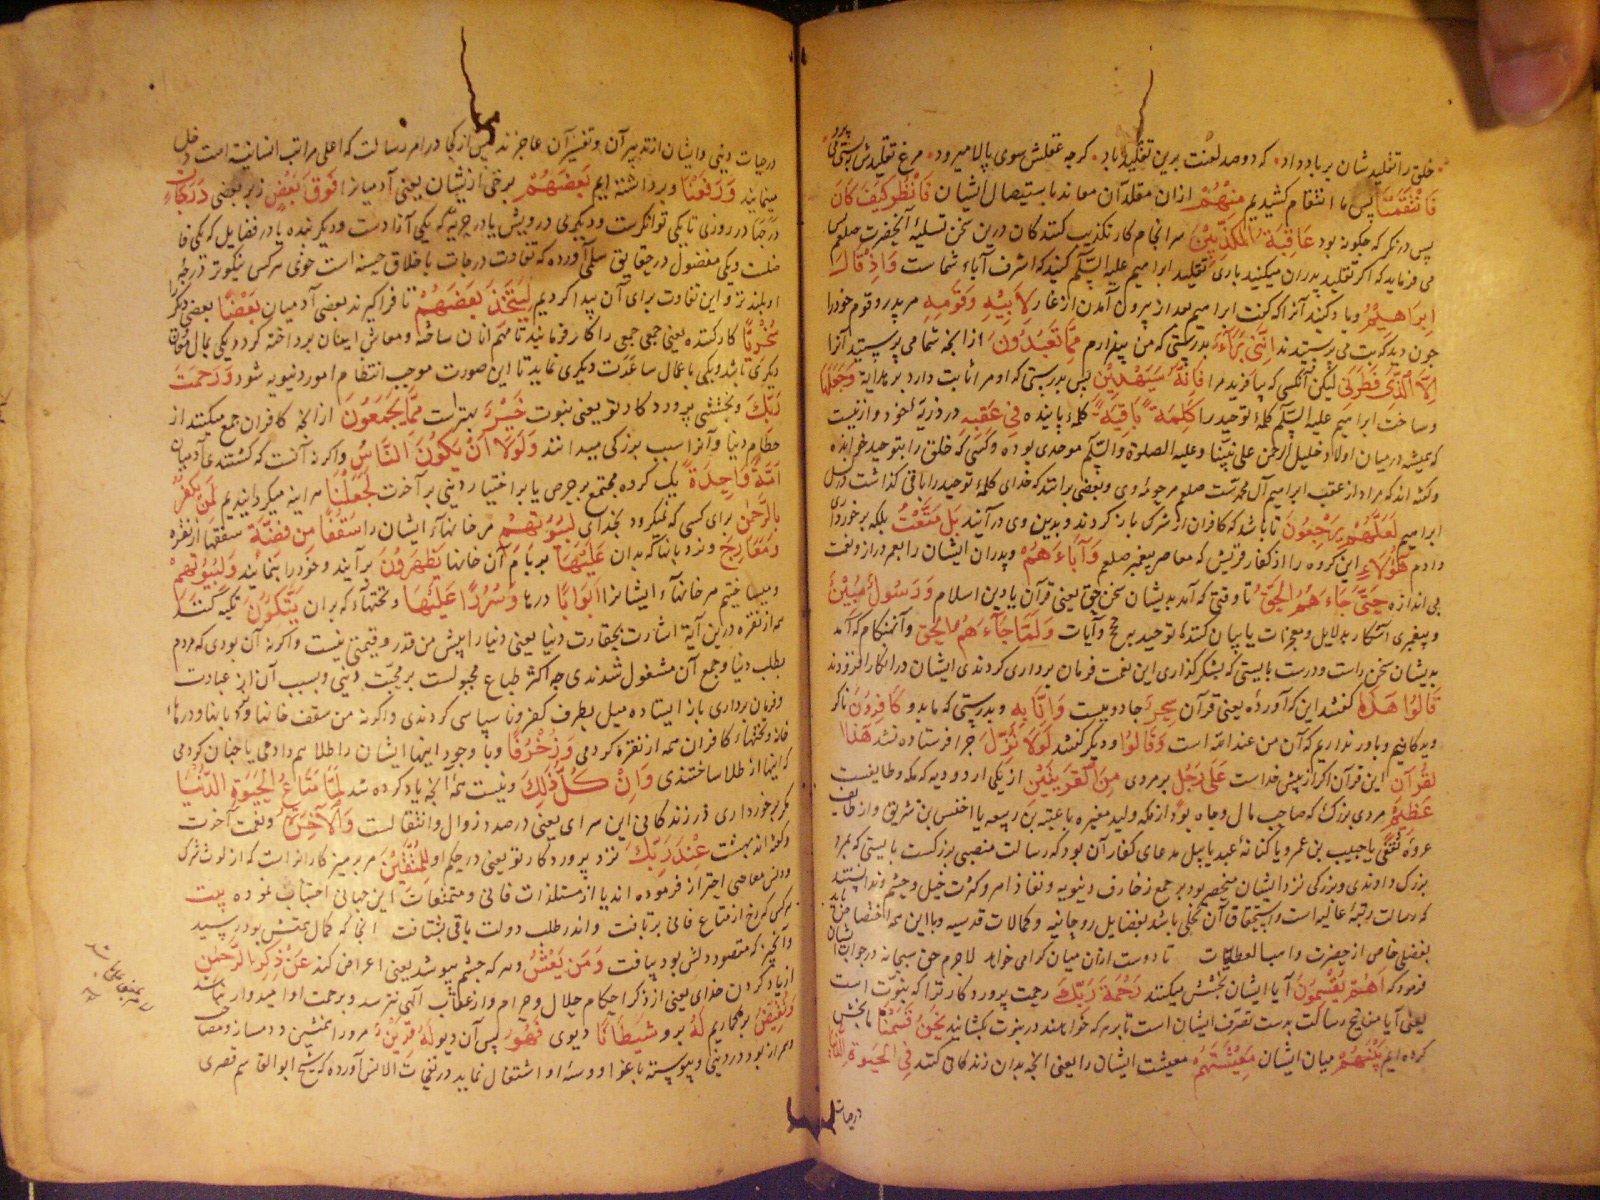 خلق را تقلیدشان بر باد داد که دو صد لعنت برین تقلید باد کرچه عقلش سوی بالا میرود مرغ تقلیدش بپستی
فَانْتَقَمْنَا پس ما انتقام کشیدیم مِنْهُمْ ازان مقلدان معاند باستیصال ایشان فَانْظُرْ كَيْفَ كَانَ
پس درنکر که چکونه بود عَاقِبَةُ الْمُكَذِّبِينَ سرانجام کار تکذیب کنندکان درین سخن تسلیهٔ آنحضرت صلعم
می فرماید که اکر تقلید پدران میکنید باری تقلید ابراهیم علیه السلام کنید که اشرف آباء شماست وَإِذْ قَالَ
إِبْرَاهِيمُ ویاد کنید آنرا که کفت ابراهیم بعد از بیرون آمدن از غار لِأَبِيهِ وَقَوْمِهِ مر پدر و قوم خود را
چون دید که بت می پرستیدند إِنَّنِي بَرَاءٌ بدرستی که من بیزارم مِمَّا تَعْبُدُونَ ازانچه شما می پرستید آنرا
إِلَّا الَّذِي فَطَرَنِي لیکن آنکسی که بیافرید مرا فَإِنَّهُ سَيَهْدِينِ پس بدرستی که او مرا ثابت دارد بر هدایة وَجَعَلَهَا
وساخت ابراهیم علیه السلام کلمهٔ توحید را كَلِمَةً بَاقِيَةً کلمهٔ پاینده فِي عَقِبِهِ در ذریهٔ خود
که همیشه درمیان اولاد خلیل الرحمن علی نبینا وعلیه الصلوة والسلام موحدی بوده وکسی که خلق را بتوحید خوانده
وکفته اند که مراد از عقب ابراهیم آل محمدست صلعم وبعضی برانند که خدای کلمهٔ توحید را باقی کذاشت در نسل
ابراهیم لَعَلَّهُمْ يَرْجِعُونَ تا باشد که کافران از شرک باز کردند وبدین وی درآیند بَلْ مَتَّعْتُ بلکه برخورداری
دادم هَؤُلَاءِ این کروه را از کفار قریش که معاصر پیغمبر صلعم وَآبَاءَهُمْ وپدران ایشان را بعمر دراز ونعمت
بی اندازه حَتَّى جَاءَهُمُ الْحَقُّ تا وقتی که آمد بدیشان سخن حق یعنی قرآن یا دین اسلام وَرَسُولٌ مُبِينٌ
وپیغمبری آشکارا بدلایل ومعجزات یا بیان کننده توحید بحجج وآیات وَلَمَّا جَاءَهُمُ الْحَقُّ وآنهنکام که آمد
بدیشان سخن راست ودرست بایستی که بشکرکذاری این نعمت فرمان برداری کردندی ایشان در انکار افزودند
قَالُوا هَذَا کفتند این که آوردهٔ یعنی قرآن سِحْرٌ جادوییست وَإِنَّا بِهِ وبدرستی که ما بدو كَافِرُونَ ناکر
ویدکانیم وباور نداریم که آن من عند الله است وَقَالُوا ودیکر کفتند لَوْلَا نُزِّلَ چرا فرستاده نشد هَذَا
الْقُرْآنُ این قرآن اکر از پیش خداست عَلَى رَجُلٍ بر مردی مِنَ الْقَرْيَتَيْنِ از یکی از دو دیه که مکه وطایفست
عَظِيمٍ مردی بزرک که صاحب مال وجاه بود از مکه ولید مغیره یا عتبه بن ربیعه یا اخنس بن شریق واز طایف
عروه ثقفی یا حبیب بن عمرو یا کنانهٔ عبد یالیل مدعای کفار آن بود که رسالت منصبی بزرکست بایستی که بمرد
بزرک دادندی وبزرکی نزد ایشان منحصر بود بر جمع زخارف دنیویه ونفاذ امر وکثرت خیل وحشم وندانستند
که رسالت رتبهٔ عالیه است واستحقاق آن تحلی باشد بفضایل روحانیه وکمالات قدسیه وبا این همه اختصاص
بفضلی خاص از حضرت واهب العطیات تا دوست ازان میان کرا می خواهد لاجرم حق سبحانه در جواب ایشان
فرمود که أَهُمْ يَقْسِمُونَ آیا ایشان بخشش میکنند رَحْمَةَ رَبِّكَ رحمت پروردکار ترا که نبوت است
یعنی آیا مفاتیح رسالت بدست تصرف ایشان است تا بر هر که خواهند در نبوت بکشایند نَحْنُ قَسَمْنَا ما بخش
کرده ایم بَيْنَهُمْ میان ایشان مَعِيشَتَهُمْ معیشت ایشان را یعنی آنچه بدان زندکانی کنند فِي الْحَيَوةِ الدُّنْيَا
درجات
درجات دینی وایشان از تدبیر آن وتغییر آن عاجزند پس از کجا در امر رسالت که اعلی مراتب انسانیه است دخل
مینمایند وَرَفَعْنَا وبرداشته ایم بَعْضَهُمْ برخی از ایشان یعنی آدمیانرا فَوْقَ بَعْضٍ زبر بعضی دَرَجَاتٍ
درجها در روزی تا یکی توانکرست ودیکری درویش یا در حریه که یکی آزادست ودیکر بنده یا در فضایل که یکی فا
ضلست ویکی مفضول در حقایق سلمی آورده که تفاوت درجات باخلاق حسنه است خوی هر کسی نیکوتر درجهٔ
او بلندتر واین تفاوت برای آن پیدا کردیم لِيَتَّخِذَ بَعْضُهُمْ تا فراکیرند بعضی آدمیان بَعْضًا بعضی دیکر
سُخْرِيًّا کارکننده یعنی جمعی جمعی را کار فرمایند تا مهم آنان ساخته ومعاش اینان پرداخته کردد یکی بمال معاون
دیکری باشد ویکی باعمال مساعدت دیکری نماید تا این صورت موجب انتظام امور دنیویه شود وَرَحْمَتُ
رَبِّكَ وبخشش پروردکار تو یعنی نبوت خَيْرٌ بهتر است مِمَّا يَجْمَعُونَ ازانچه کافران جمع میکنند از
حطام دنیا وآنرا سبب بزرکی میدانند وَلَوْلَا أَنْ يَكُونَ النَّاسُ واکرنه آنست که کشتند عادمیان
أُمَّةً وَاحِدَةً یک کروه مجتمع بر حرص یا بر اختیار دنیی بر آخرت لَجَعَلْنَا هر اینه میکردانیدیم لِمَنْ يَكْفُرُ
بِالرَّحْمَنِ برای کسی که نمیکرود بخدای لِبُيُوتِهِمْ مر خانهاء ایشان را سَقْفًا مِنْ فِضَّةٍ سقفها از نقره
وَمَعَارِجَ ونردبانها که بدان عَلَيْهَا بر بام آن خانها يَظْهَرُونَ برآیند وخود را بنمایند وَلِبُيُوتِهِمْ
ومیساختیم مر خانهاء ایشانرا أَبْوَابًا درها وَسُرُرًا عَلَيْهَا وتختهاء که بران يَتَّكِئُونَ تکیه کنند
همه از نقره درین آیة اشارت بحقارت دنیا یعنی دنیا را پیش من قدر وقیمتی نیست واکرنه آن بودی که مردم
بطلب دنیا وجمع آن مشغول شدندی چه اکثر طباع مجبولست بر محبت دنیی وبسبب آن از عبادت
وفرمان برداری باز ایستاده میل بطرف کفر وناسپاسی کردندی واکرنه من سقف خانها ودرهاء
خانه وتختهاء کافران همه از نقره کردمی وَزُخْرُفًا وبا وجود اینها ایشان را طلا هم دادمی یا چنان کردمی
که اینها از طلا ساختندی وَإِنْ كُلُّ ذَلِكَ ونیست همه آنچه یاد کرده شد لَمَّا مَتَاعُ الْحَيَوةِ الدُّنْيَا
مکر برخورداری در زندکانی این سرای یعنی در صدد زوال وانتقالست وَالْآخِرَةُ ونعمت آخرت
وآنچه در بهشت عِنْدَ رَبِّكَ نزد پروردکار تو یعنی در حکم او لِلْمُتَّقِينَ مر پرهیزکارانراست که از لوث شرک
ودنس معاصی احتراز فرموده اند یا از مستلذات فانی ومتمتعات این جهانی اجتناب نموده بیت
هر کس که رخ از متاع فانی برتافت واندر طلب دولت باقی بشتافت انجا که کمال همتش بود رسید
وآنچیز که مقصود دلش بود بیافت وَمَنْ يَعْشُ وهر که چشم بپوشد یعنی اعراض کند عَنْ ذِكْرِ الرَّحْمَنِ
از یاد کردن خدای یعنی از ذکر احکام حلال وحرام واز عقاب الهی نترسد وبرحمت او امیدوار نباشد
نُقَيِّضْ برکماریم لَهُ برو شَيْطَانًا دیوی فَهُوَ پس آن دیو لَهُ قَرِينٌ مر ورا همنشین ودمساز
وهمراز بود در دنیی وپیوسته باغوا ووسوسهٔ او اشتغال نماید در نفحات الانس آورده که شیخ ابوالقاسم مصری